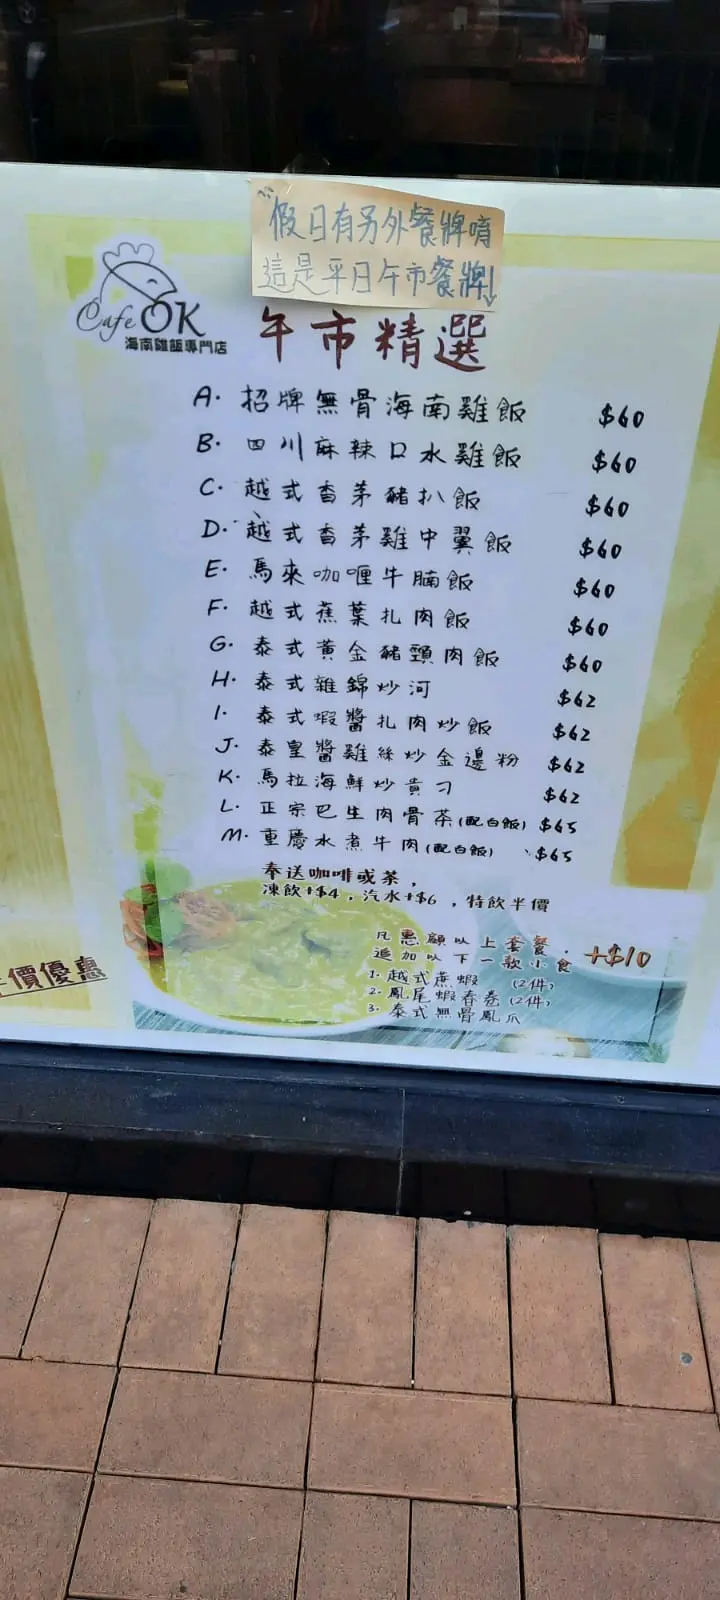 假日有另外餐牌唷
這是平日午市餐牌!
Cafe OK
海南雞飯專門店
午市精選
A. 招牌無骨海南雞飯 $60
B. 四川麻辣口水雞飯 $60
C. 越式香茅豬扒飯 $60
D. 越式香茅雞中翼飯 $60
E. 馬來咖喱牛腩飯 $60
F. 越式蕉葉扎肉飯 $60
G. 泰式黃金豬頸肉飯 $60
H. 泰式雜錦炒河 $62
I. 泰式蝦醬扎肉炒飯 $62
J. 泰皇醬雞絲炒金邊粉 $62
K. 馬拉海鮮炒貴刁 $62
L. 正宗巴生肉骨茶(配白飯) $65
M. 重慶水煮牛肉(配白飯) $65
奉送咖啡或茶,
凍飲+$4,汽水+$6,特飲半價
凡惠顧以上套餐,
追加以下一款小食 +$10
1. 越式蔗蝦 (2件)
2. 鳳尾蝦春卷 (2件)
3. 泰式無骨鳳爪
價優惠